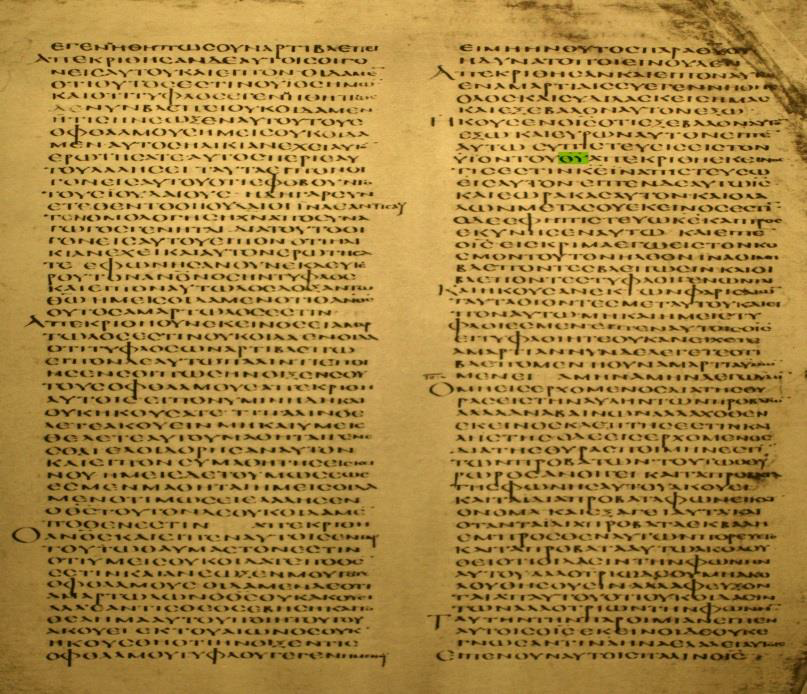 ΕΓΕΝΝΗΘΗΠΩϹΟΥΝΑΡΤΙΒΛΕΠΕΙ
ΑΠΕΚΡΙΘΗϹΑΝΔΕΑΥΤΟΙϹΟΙΓΟ
ΝΕΙϹΑΥΤΟΥΚΑΙΕΙΠΟΝΟΙΔΑΜΕ
ΟΤΙΟΥΤΟϹΕϹΤΙΝΟΥΙΟϹΗΜΩ
ΚΑΙΟΤΙΤΥΦΛΟϹΕΓΕΝΝΗΘΗΠΩϹ
ΔΕΝΥΝΒΛΕΠΕΙΟΥΚΟΙΔΑΜΕΝ
ΗΤΙϹΗΝΕΩΞΕΝΑΥΤΟΥΤΟΥϹ
ΟΦΘΑΛΜΟΥϹΗΜΕΙϹΟΥΚΟΙΔΑ
ΜΕΝΑΥΤΟϹΗΛΙΚΙΑΝΕΧΕΙΑΥ
ΕΡΩΤΗϹΑΤΕΑΥΤΟϹΠΕΡΙΑΥ
ΤΟΥΛΑΛΗϹΕΙ ΤΑΥΤΑΕΙΠΟΝΟΙ
ΓΟΝΕΙϹΑΥΤΟΥΟΤΙΕΦΟΒΟΥΝΤΟ
ΤΟΥϹΙΟΥΔΑΙΟΥϹ ΗΔΗΓΑΡϹΥΝ
ΕΤΕΘΕΝΤΟΟΙΙΟΥΔΑΙΟΙΙΝΑΕΑΝΤΙϹΑΥ
ΤΟΝΟΜΟΛΟΓΗϹΗΧΝΑΠΟϹΥΝΑ
ΓΩΓΟϹΓΕΝΗΤΑΙ ΔΙΑΤΟΥΤΟΟΙ
ΓΟΝΕΙϹΑΥΤΟΥΕΙΠΟΝ ΟΤΙΗΛΙ
ΚΙΑΝΕΧΕΙΚΑΙΑΥΤΟΝΕΡΩΤΗϹΑ
ΤΕ ΕΦΩΝΗϹΑΝΟΥΝΕΚΔΕΥΤΕ
ΡΟΥΤΟΝΑΝΟΝΟϹΗΝΤΥΦΛΟϹ
ΚΑΙΕΙΠΟΝΑΥΤΩΔΟϹΔΟΞΑΝΤΩ
ΘΩ ΗΜΕΙϹΟΙΔΑΜΕΝΟΤΙΟΑΝΟϹ
ΟΥΤΟϹΑΜΑΡΤΩΛΟϹΕϹΤΙΝ
ΑΠΕΚΡΙΘΗΟΥΝΕΚΕΙΝΟϹΕΙΑΜΑΡ
ΤΩΛΟϹΕϹΤΙΝΟΥΚΟΙΔΑΕΝΟΙΔΑ
ΟΤΙΤΥΦΛΟϹΩΝΑΡΤΙΒΛΕΠΩ
ΕΙΠΟΝΔΕΑΥΤΩΠΑΛΙΝΤΙΕΠΟΙ
ΗϹΕΝϹΟΙΠΩϹΗΝΟΙΞΕΝϹΟΥ
ΤΟΥϹΟΦΘΑΛΜΟΥϹΑΠΕΚΡΙΘΗ
ΑΥΤΟΙϹΕΙΠΟΝΥΜΙΝΗΔΗΚΑΙ
ΟΥΚΗΚΟΥϹΑΤΕ ΤΙΠΑΛΙΝΘΕ
ΛΕΤΕΑΚΟΥΕΙΝΜΗΚΑΙΥΜΕΙϹ
ΘΕΛΕΤΕΑΥΤΟΥΜΑΘΗΤΑΙΓΕΝΕ
ϹΘΑΙ ΕΛΟΙΔΟΡΗϹΑΝΑΥΤΟΝ
ΚΑΙΕΙΠΟΝ ϹΥΜΑΘΗΤΗϹΕΙΕΚΕΙ
ΝΟΥ ΗΜΕΙϹΔΕΤΟΥΜΩϹΕΩϹ
ΕϹΜΕΝΜΑΘΗΤΑΙΗΜΕΙϹΟΙΔΑ
ΜΕΝΟΤΙΜΩϹΕΙΛΕΛΑΛΗΚΕΝ
ΟΘϹΤΟΥΤΟΝΔΕΟΥΚΟΙΔΑΜΕ
ΠΟΘΕΝΕϹΤΙΝ ΑΠΕΚΡΙΘΗ
ΟΑΝΟϹΚΑΙΕΙΠΕΝΑΥΤΟΙϹΕΝΓΑΡ
ΤΟΥΤΩΘΑΥΜΑϹΤΟΝΕϹΤΙΝ
ΟΤΙΥΜΕΙϹΟΥΚΟΙΔΑΤΕΠΟΘΕ
ΕϹΤΙΝΚΑΙΑΝΕΩΞΕΝΜΟΥΤΟΥϹ
ΟΦΘΑΛΜΟΥϹΟΙΔΑΜΕΝΔΕΟΤΙ
ΑΜΑΡΤΩΛΩΝΟΘϹΟΥΚΑΚΟΥΕΙ
ΑΛΛΕΑΝΤΙϹΘΕΟϹΕΒΗϹΗΚΑΙΤΟ
ΘΕΛΗΜΑΑΥΤΟΥΠΟΙΗΤΟΥΤΟΥ
ΑΚΟΥΕΙ ΕΚΤΟΥΑΙΩΝΟϹΟΥΚ
ΗΚΟΥϹΘΗΟΤΙΗΝΟΙΞΕΝΤΙϹ
ΟΦΘΑΛΜΟΥϹΤΥΦΛΟΥΓΕΓΕΝΝΗΜΕΝΟΥ
ΕΙΜΗΗΝΟΥΤΟϹΠΑΡΑΘΥΟΥ
ΗΔΥΝΑΤΟΠΟΙΕΙΝΟΥΔΕΝ
ΑΠΕΚΡΙΘΗϹΑΝΚΑΙΕΙΠΟΝΑΥΤΩ
ΕΝΑΜΑΡΤΙΑΙϹϹΥΕΓΕΝΝΗΘΗϹ
ΟΛΟϹΚΑΙϹΥΔΙΔΑϹΚΕΙϹΗΜΑϹ
ΚΑΙΕΞΕΒΑΛΟΝΑΥΤΟΝΕΞΩ
ΗΚΟΥϹΕΝΟΙϹΟΤΙΕΞΕΒΑΛΟΝΑΥΤΟ
ΕΞΩ ΚΑΙΕΥΡΩΝΑΥΤΟΝΕΙΠΕ
ΑΥΤΩ ϹΥΠΙϹΤΕΥΕΙϹΕΙϹΤΟΝ
ΥΙΟΝΤΟΥΘΥΑΠΕΚΡΙΘΗΕΚΕΙΝΟϹ
ΤΙϹΕϹΤΙΝΚΕΙΝΑΠΙϹΤΕΥϹΩ
ΕΙϹΑΥΤΟΝ ΕΙΠΕΝΔΕΑΥΤΩΙϹ
ΚΑΙΕΩΡΑΚΑϹΑΥΤΟΝΚΑΙΟΛΑ
ΛΩΝΜΕΤΑϹΟΥΕΚΕΙΝΟϹΕϹΤΙ
ΟΔΕΕΦΗΠΙϹΤΕΥΩΚΕΚΑΙΠΡΟϹ
ΕΚΥΝΗϹΕΝΑΥΤΩ ΚΑΙΕΙΠΕ
ΟΙϹΕΙϹΚΡΙΜΑΕΓΩΕΙϹΤΟΝΚΟ
ϹΜΟΝΤΟΥΤΟΝΗΛΘΟΝΙΝΑΟΙΜΗ
ΒΛΕΠΟΝΤΕϹΒΛΕΠΩϹΙΝΚΑΙΟΙ
ΒΛΕΠΟΝΤΕϹΤΥΦΛΟΙΓΕΝΩΝΤΑΙ
ΚΑΙΗΚΟΥϹΑΝΕΚΤΩΝΦΑΡΙϹΑΙΩ
ΤΑΥΤΑΟΙΟΝΤΕϹΜΕΤΑΥΤΟΥΚΑΙΕΙ
ΠΟΝΑΥΤΩΜΗΚΑΙΗΜΕΙϹΤΥ
ΦΛΟΙΕϹΜΕΝΕΙΠΕΝΑΥΤΟΙϹΟΙϹ
ΕΙΤΥΦΛΟΙΗΤΕΟΥΚΑΝΕΙΧΕΤΕ
ΑΜΑΡΤΙΑΝΝΥΝΔΕΛΕΓΕΤΕΟΤΙ
ΒΛΕΠΟΜΕΝ ΗΟΥΝΑΜΑΡΤΙΑΥΜΩ
ΜΕΝΕΙ ΑΜΗΝΑΜΗΝΛΕΓΩΥΜΙ
ΟΜΗΕΙϹΕΡΧΟΜΕΝΟϹΔΙΑΤΗϹΘΥ
ΡΑϹΕΙϹΤΗΝΑΥΛΗΝΤΩΝΠΡΟΒΑΤΩ
ΑΛΛΑΑΝΑΒΑΙΝΩΝΑΛΛΑΧΟΘΕΝ
ΕΚΕΙΝΟϹΚΛΕΠΤΗϹΕϹΤΙΝΚΑΙ
ΛΗϹΤΗϹ ΟΔΕΕΙϹΕΡΧΟΜΕΝΟϹ
ΔΙΑΤΗϹΘΥΡΑϹΠΟΙΜΗΝΕϹΤΙ
ΤΩΝΠΡΟΒΑΤΩΝΤΟΥΤΩΟΘΥ
ΡΩΡΟϹΑΝΟΙΓΕΙ ΚΑΙΤΑΠΡΟΒΑΤΑ
ΤΗϹΦΩΝΗϹΑΥΤΟΥΑΚΟΥΕΙ
ΚΑΙΤΑΙΔΙΑΠΡΟΒΑΤΑΦΩΝΕΙΚΑΤ
ΟΝΟΜΑ ΚΑΙΕΞΑΓΕΙΑΥΤΑΚΑΙ
ΟΤΑΝΤΑΙΔΙΑΠΡΟΒΑΤΑΕΚΒΑΛΗ
ΕΜΠΡΟϹΘΕΝΑΥΤΩΝΠΟΡΕΥΕΤΑΙ
ΚΑΙΤΑΠΡΟΒΑΤΑΑΥΤΩΑΚΟΛΟΥ
ΘΕΙΟΤΙΟΙΔΑϹΙΝΤΗΝΦΩΝΗΝ
ΑΥΤΟΥΑΛΛΟΤΡΙΩΔΕΟΥΜΗΑΚΟ
ΛΟΥΘΗϹΟΥϹΙΝΑΛΛΑΦΕΥΞΟΝ
ΤΑΙΑΠΑΥΤΟΥΟΤΙΟΥΚΟΙΔΑϹΙΝ
ΤΩΝΑΛΛΟΤΡΙΩΝΤΗΝΦΩΝΗΝ
ΤΑΥΤΗΝΤΗΝΠΑΡΟΙΜΙΑΝΕΙΠΕΝ
ΑΥΤΟΙϹΟΙϹ ΕΚΕΙΝΟΙΔΕΟΥΚΕ
ΓΝΩϹΑΝΤΙΝΑΗΝΑΕΛΑΛΕΙΑΥΤΟΙϹ
ΕΙΠΕΝΟΥΝΑΥΤΟΙϹΠΑΛΙΝΟΙϹ